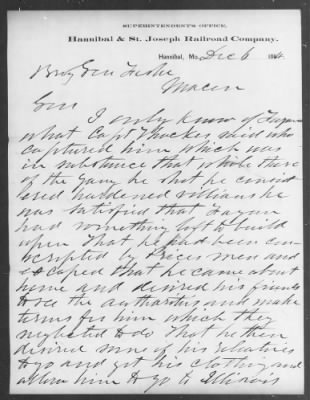 SUPERINTENDENT'S OFFICE,
Hannibal & St. Joseph Railroad Company.
Hannibal, Mo. Dec 6 1864.
Brig Gen Fisk
Macon
Gen
I only know of
what Capt said who
captured him which was
in substance that while three
of the gang he that he consid
ered hardened villians he
was satisfied that
had something left to build
upon That he had been con
scripted by Prices men and
escaped that he came about
home and desired his friends
to see the authorities and make
terms for him which they
neglected to do That he then
desired some of his relatives
to go and get his clothing and
allow him to go to Illinois